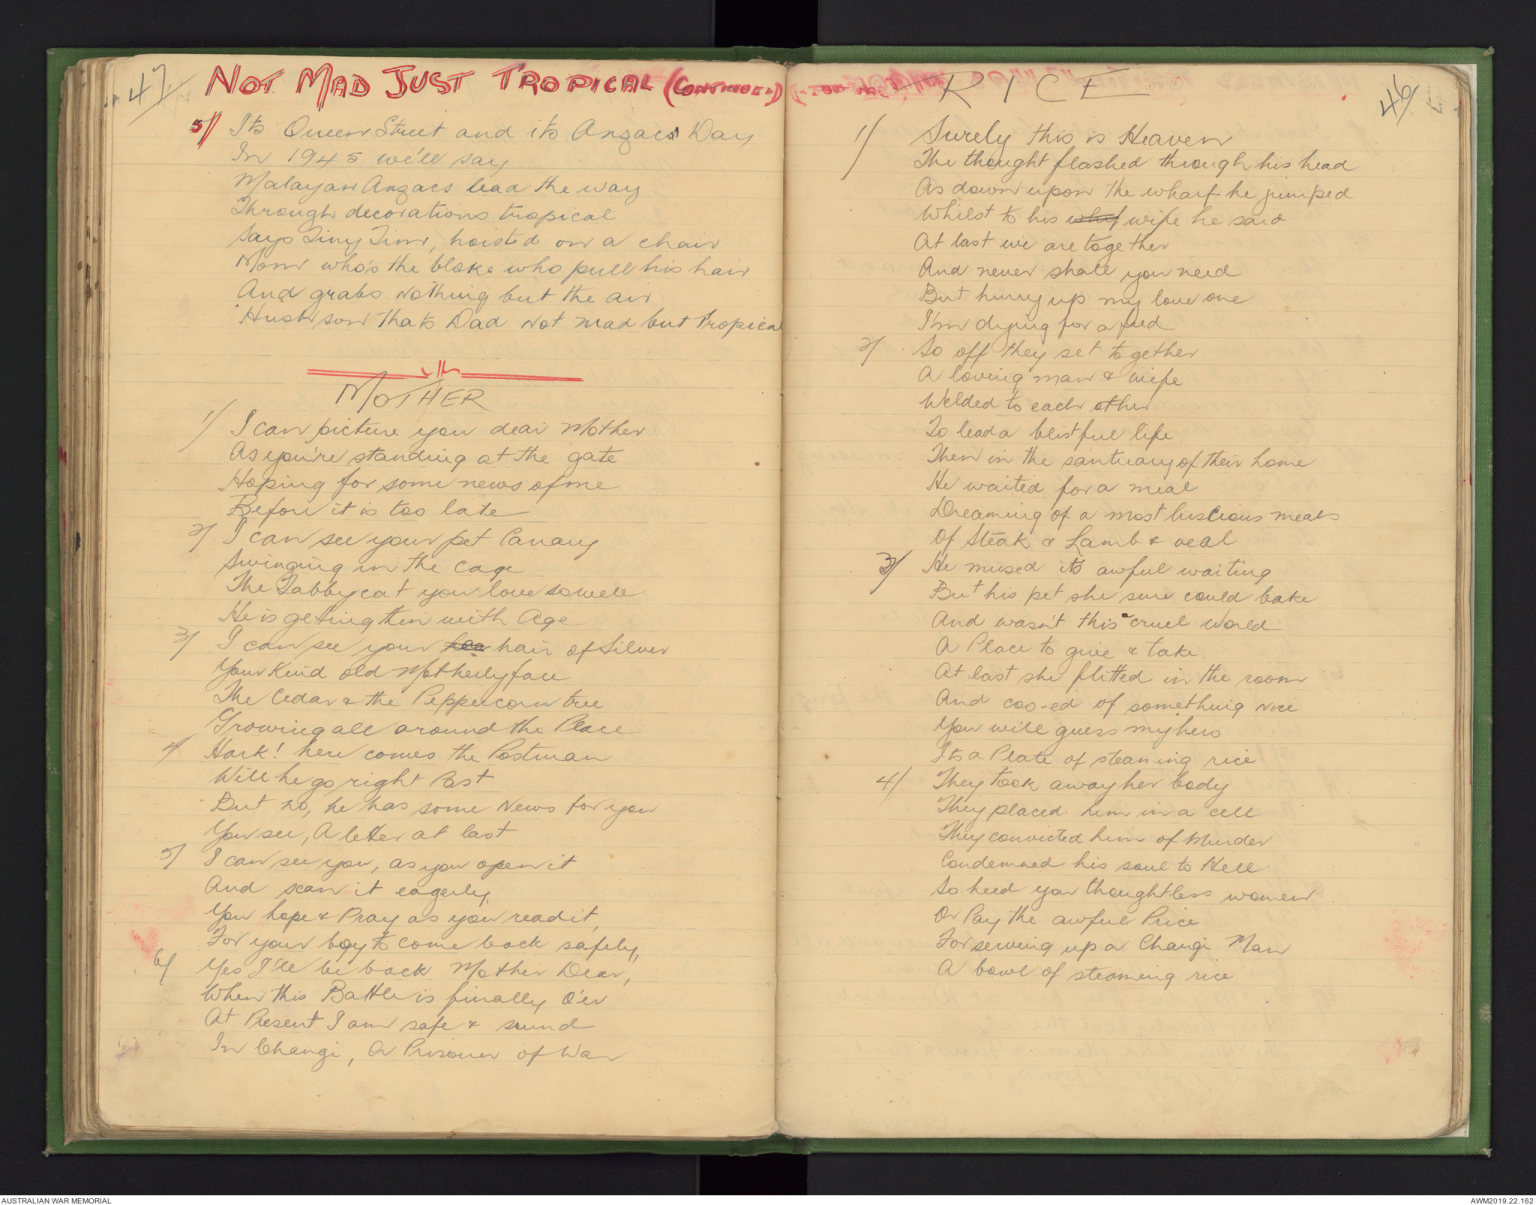 47
NOT MAD JUST TROPICAL (CONTINUED)
5/ Its Queen Street and its Anzacs Day
In 1945 we'll say
Malayan Anzacs lead the way
Through decorations tropical
Says Tiny Tim, hoisted on a chair
Mom who's the bloke who pull his hair
And grabs nothing but the air
Hush son that's Dad not mad but tropical
MOTHER
1/ I can picture you dear Mother
As you're standing at the gate
Hoping for some news of me
Before it is too late
2/ I can see your pet Canary
Swinging in the cage
The Tabby cat you love so well
He is geting thin with Age
3/ I can see your hair of Silver
Your Kind old Motherly face
The Cedar & the Peppercorn tree
Growing all around the Place
4/ Hark! here comes the Postman
Will he go right Past
But no, he has some News for you
You see, A letter at last
5/ I can see you, as you open it
And scan it eagerly,
You hope & Pray as you read it,
For your boy to come back safely,
6/ Yes I'll be back Mother Dear,
When this Battle is finally O'er
At Present I am safe & sound
In Changi, A Prisoner of War
46
RICE
1/ Surely this is Heaven
The thought flashed through his head
As down upon the wharf he jumped
Whilst to his wife he said
At last we are together
And never shall you need
But hurry up my love one
I'm dying for a feed
2/ So off they set together
A loving man & wife
Welded to each other
To lead a blistful life
Then in the santuary of their home
He waited for a meal
Dreaming of a most luscious meals
Of Steak & Lamb & veal
3/ He mused its awful waiting
But his pet she sure could bake
And wasn't this cruel world
A Place to give & take.
At last she flitted in the room
And coo-ed of something nice
You will guess my hero
Its a Plate of steaming rice
4/ They took away her body
They placed him in a cell
They convicted him of Murder
Condemned his soul to Hell
So heed you thoughtless women
Or Pay the awful Price
For serving up a Changi Man
A bowl of steaming rice
AUSTRALIAN WAR MEMORIAL
AWM2019.22.162